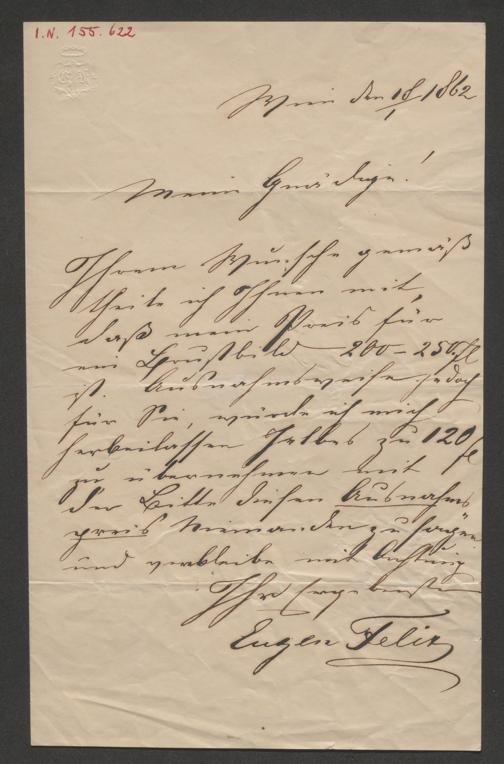 I.N. 155.622
Wien den 18/1 1862
Meine Gnädige!
Ihrem Wunsche gemäß
theile ich Ihnen mit,
daß mein Preis für
ein Brustbild 200–250 fl
ist. Ausnahmsweise jedoch
für Sie, würde ich mich
herbeilassen selbes zu 120 fl
zu übernehmen mit
der Bitte diesen Ausnahms
preis Niemanden zu sagen
und verbleibe mit Achtung
Ihr Ergebenster
Eugen Felix